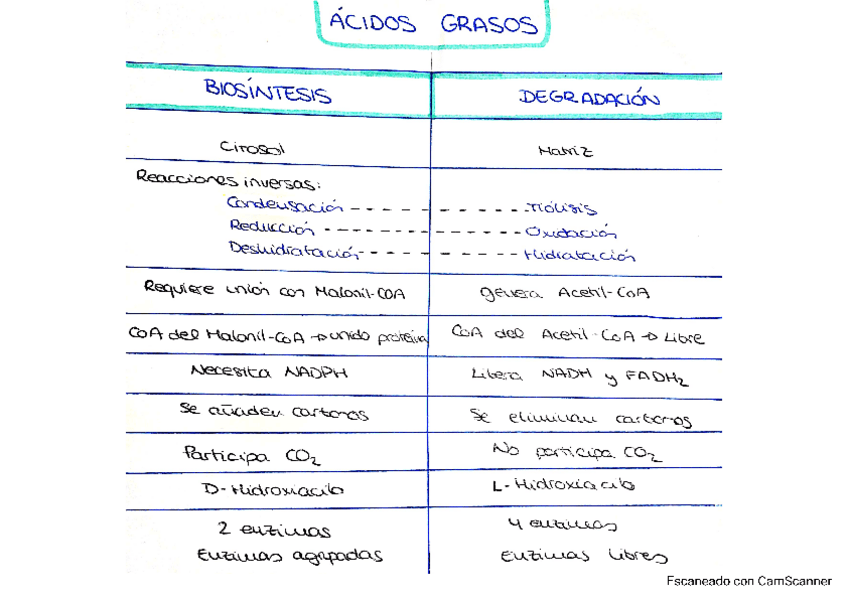 ÁCIDOS GRASOS
BIOSÍNTESIS DEGRADACIÓN
Citosol Matriz
Reacciones inversas:
Condensación - - - - - - - - - - - Tiólisis
Reducción - - - - - - - - - - - - - Oxidación
Deshidratación - - - - - - - - - - Hidratación
Requiere unión con Malonil-COA Genera Acetil-CoA
CoA del Malonil-CoA → unido proteína CoA del Acetil-CoA → Libre
Necesita NADPH Libera NADH y FADH₂
Se añaden carbonos Se eliminan carbonos
Participa CO₂ No participa CO₂
D-Hidroxiacilo L-Hidroxiacilo
2 enzimas 4 enzimas
Enzimas agrupadas Enzimas libres
Escaneado con CamScanner